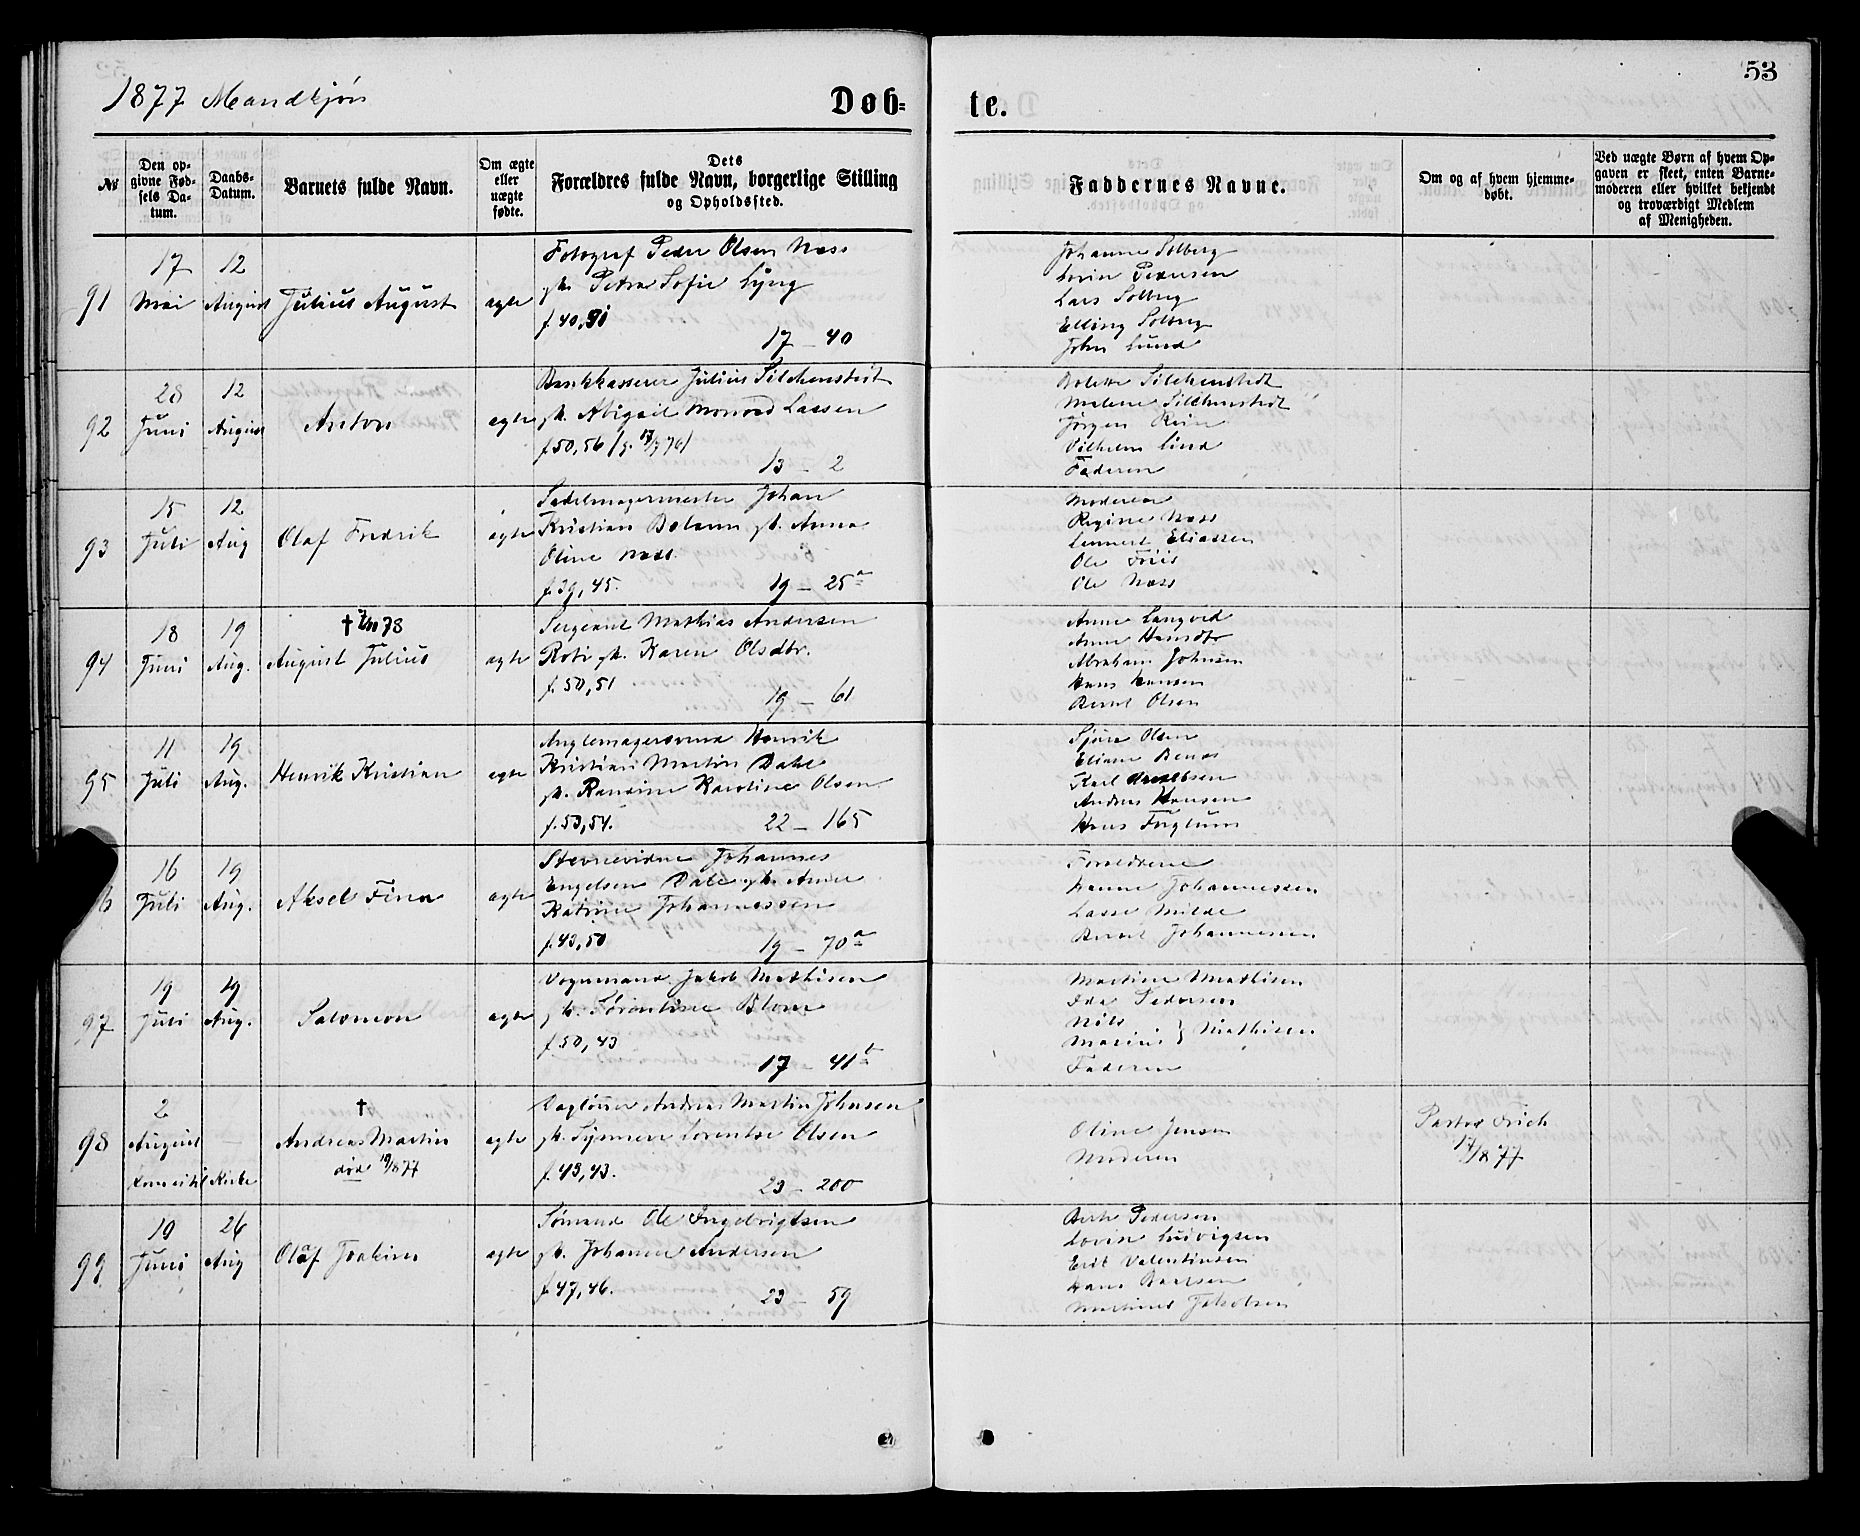 53
1877 Mandkjøn
Døb=
te.
№
Den op-
givne Fød-
sels Da-
tum.
Daabs-
Datum.
Barnets fulde Navn.
Om ægte
eller
uægte
fødte.
Dets
Forældres fulde Navn, borgerlige Stilling
og Opholdssted.
Faddernes Navne.
Om og af hvem hjemme-
døbt.
Ved uægte Børn af hvem Op-
gaven er skeet, enten Barne-
moderen eller hvilket bekjendt
og troværdigt Medlem
af Menigheden.
91
17
Mai
12
August
Julius August
ægte
Fotograf Peder Olsen Næss
Petra Sofie Lyng
f. 40,
17 – 40
Johanne Solberg
Pedersen
Lars Solberg
Elling Solberg
John Lund
92
28
Juni
12
August
Anton
ægte
Bankkasserer Julius Silchenstedt
Abigail Monrad Lassen
f. 50, 56
13 – 2
Bolette Silchenstedt
Malene Silchenstedt
Jørgen
Vilhelm Lind
Faderen
93
15
Juli
12
Aug
Olaf Fredrik
ægte
Sadelmagermester Johan
Kristian Anna
Oline Næss.
f. 39, 45.
19 – 25a
Moderen
Regine Næss
Lennert Eliassen
Ole Friis
Ole Næss
94
18
Juni
19
Aug.
† 78
August Julius
ægte
Sergeant Mathias Andersen
Karen Olsdtr.
f. 50, 51
19 – 61
Anne Langved
Anne Hansdtr
Abraham Johnsen
Hans Hansen
Bernt Olsen
95
11
Juli
19
Aug.
Henrik Kristian
ægte
Henrik
Kristian Martin Dahl
Karoline Olsen
f. 53, 54.
22 – 165
Olsen
Karl
Andreas Hansen
Hans
16
Juli
19
Aug.
Aksel Finn
ægte
Stevnevidne Johannes
Engelsen Dale Anne
Katrine Johannessen
f. 43, 50
19 – 70a
Forældrene
Hanne Johannessen
Lasse Milde
Bernt Johannessen
97
19
Juli
19
Aug.
Salomon
ægte
Vognmand Jakob Mathisen
Sørentine Blom
f. 50, 43
17 – 41b
Martine Mathisen
Ida Pedersen
Nils
Marius } Mathisen
Faderen
98
2
August
†
Andreas Martin
død 19/8 77
ægte
Andreas Martin Johnsen
Lorentse Olsen
f. 43, 43.
23 – 200
Oline Jensen
Moderen
Pastor
17/8 77
99
19
Juni
26
Aug
Olaf Joakim
ægte
Sømand Ole Ingebrigtsen
Johanne Andersen
f. 47, 46.
23 – 59
Berte Pedersen
Lovise Ludvigsen
Erik Valentinsen
Hans
Martinus Jakobsen